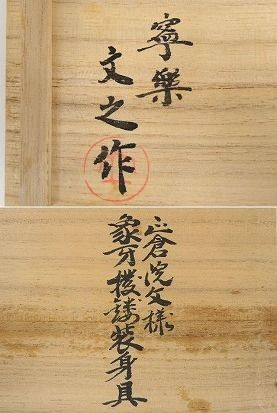 寧樂
文之作
正倉院文様
象牙撥鏤装身具